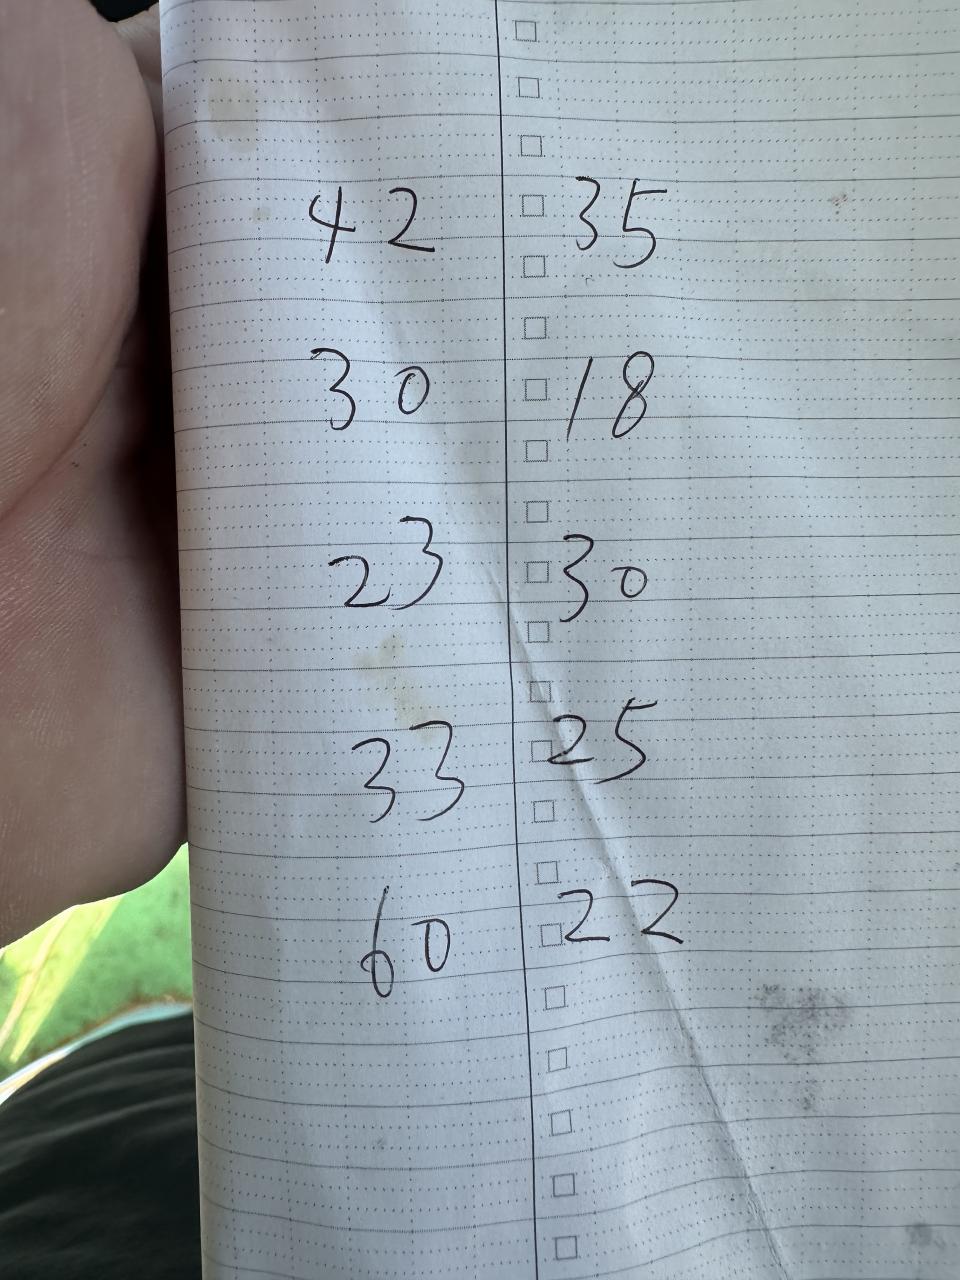 42 35
30 18
23 30
33 25
60 22